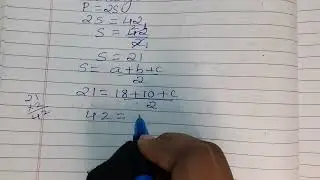 P = 2S
2S = 42
S = 42/2
S = 21
S = a+b+c/2
21 = 18+10+c/2
21
×2
42
42 =